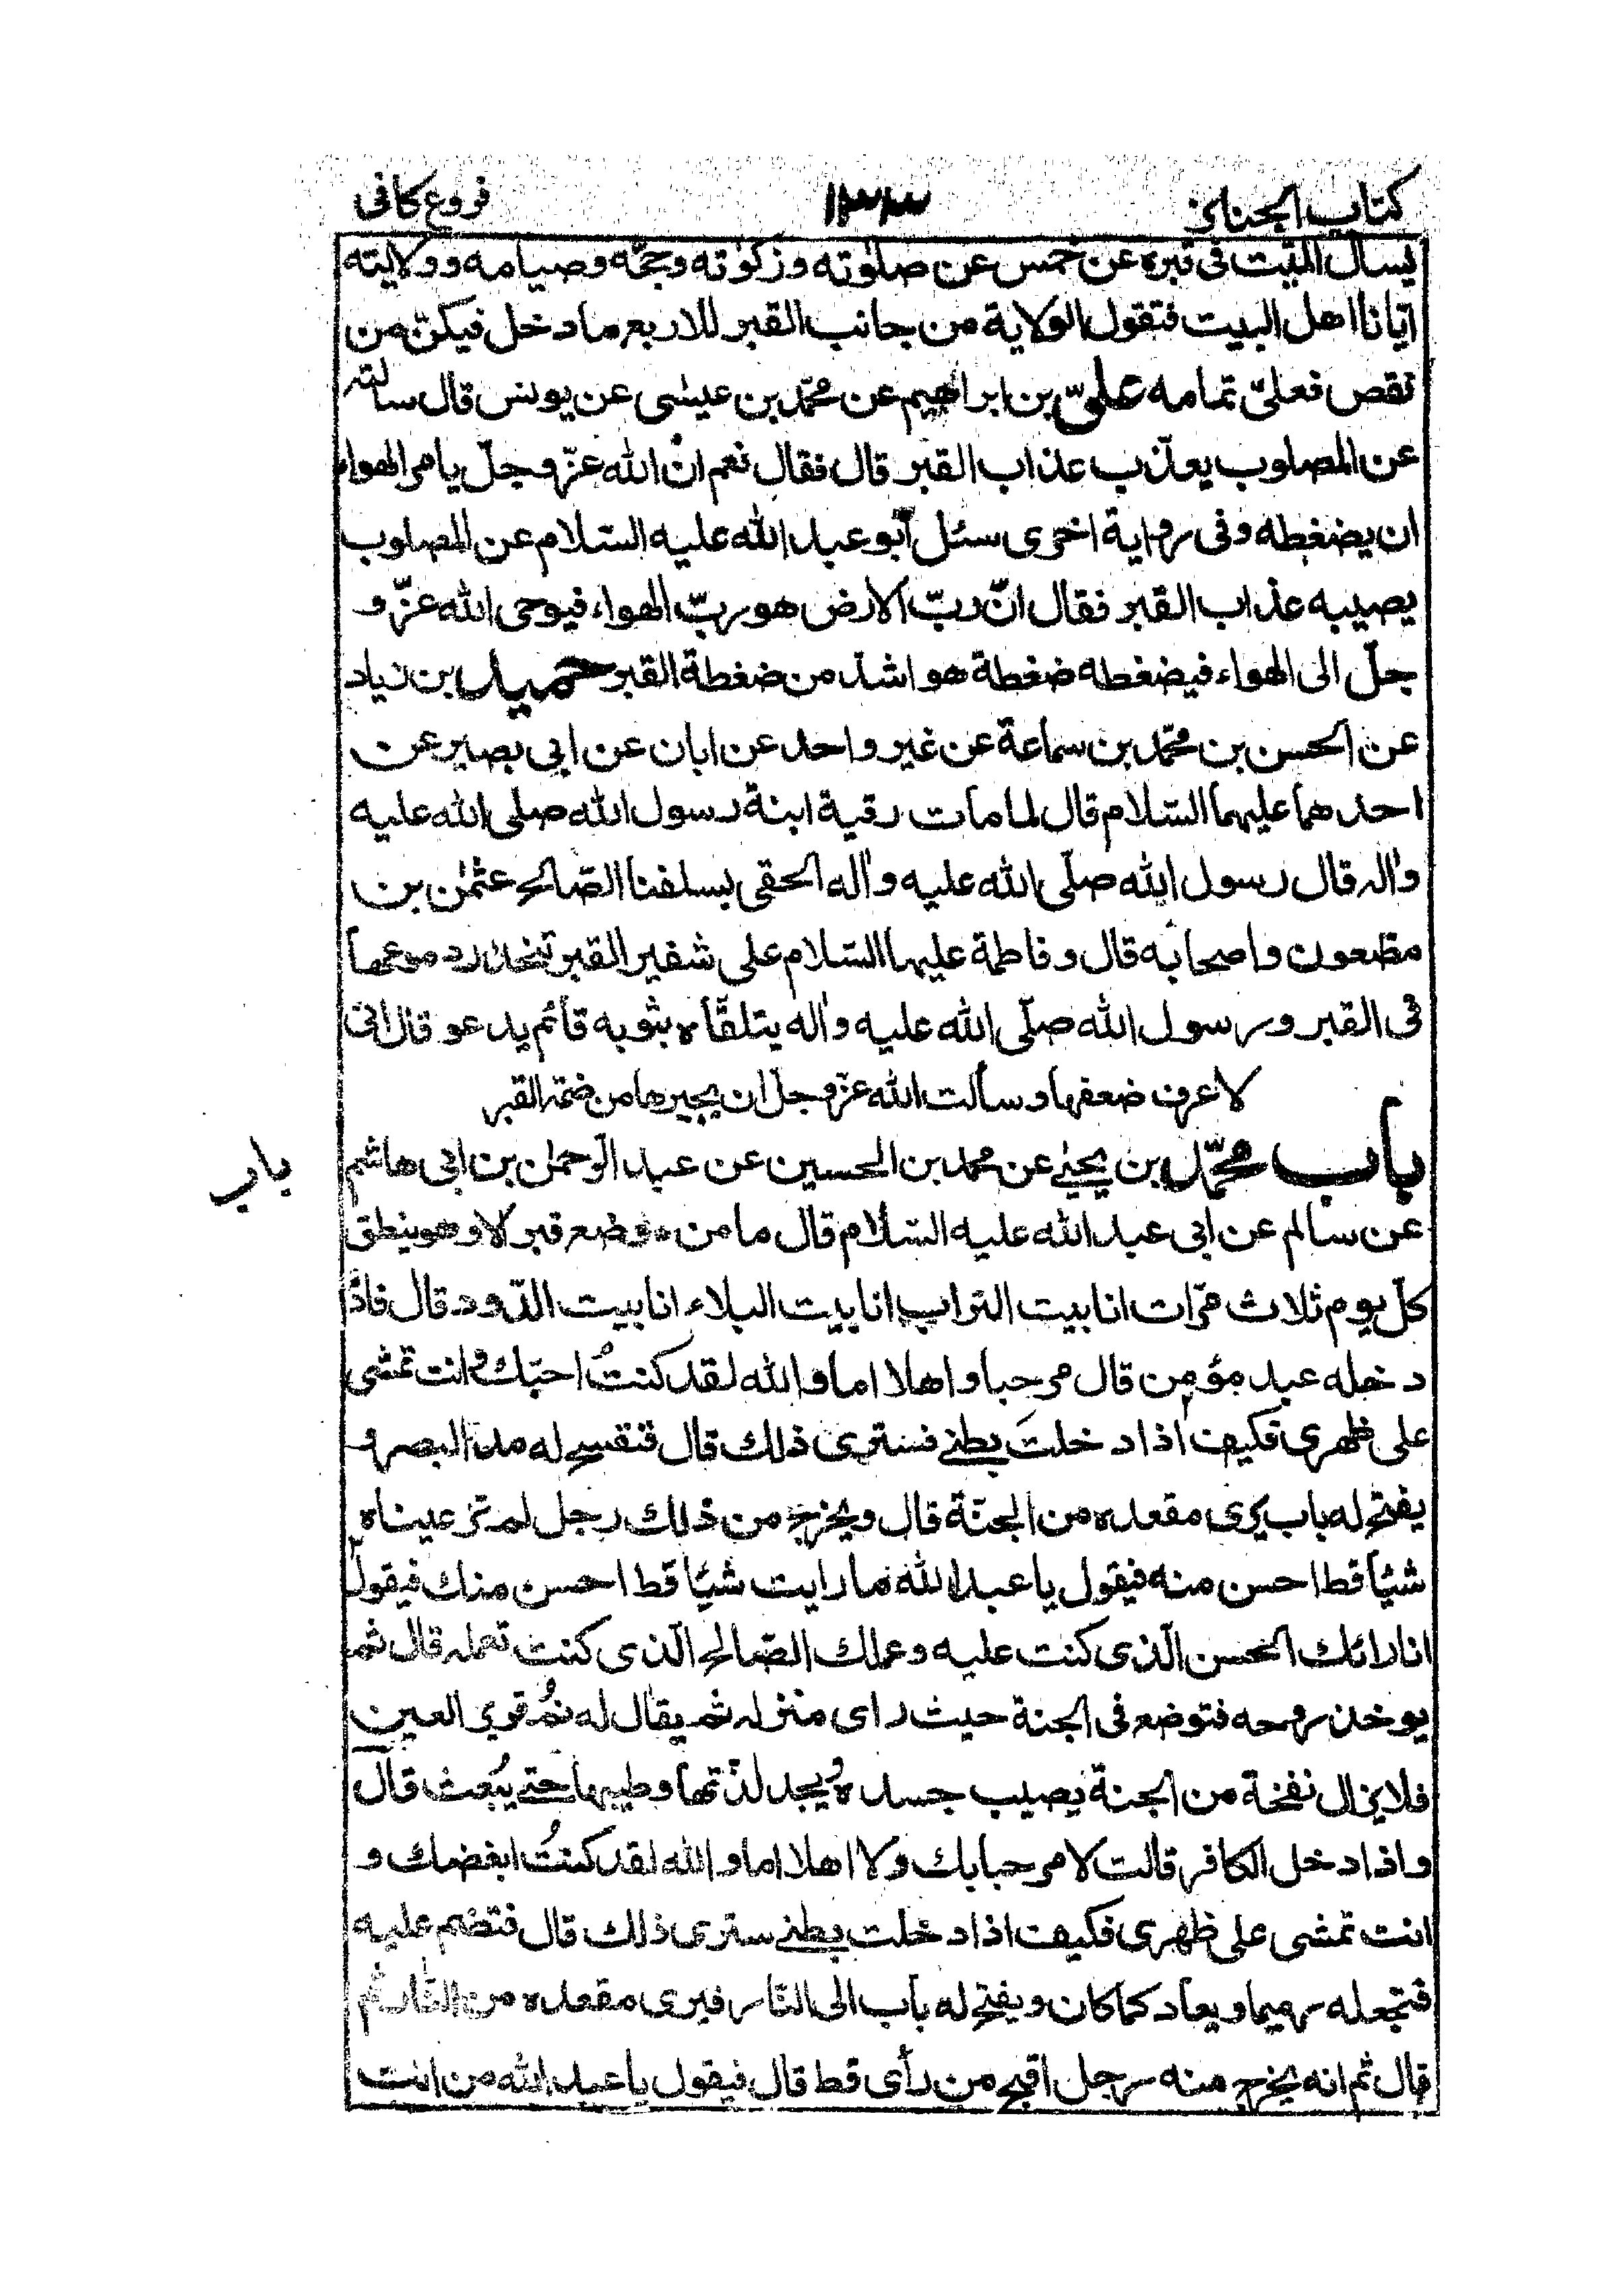 كتاب الجنائز ١٣٣ فروع كافى
يسال الميّت فى قبره عن خمس عن صلوٰته وزكوٰته وحجّه وصيامه وولايته
ايّانا اهل البيت فتقول الولاية من جانب القبر للاربع ما دخل فيكنّ من
نقص فعليّ تمامه علىّ بن ابراهيم عن محمّد بن عيسٰى عن يونس قال سالته
عن المصلوب يعذّب عذاب القبر قال فقال نعم انّ الله عزّ وجلّ يامر الهواء
ان يضغطه وفى رواية اخرى سئل ابو عبد الله عليه السّلام عن المصلوب
يصيبه عذاب القبر فقال انّ ربّ الارض هو ربّ الهواء فيوحى الله عزّ و
جلّ الى الهواء فيضغطه ضغطة هو اشدّ من ضغطة القبر حميد بن زياد
عن الحسن بن محمّد بن سماعة عن غير واحد عن ابان عن ابي بصير عن
احدهما عليهما السّلام قال لما مات رقية ابنة رسول الله صلى الله عليه
واٰله قال رسول الله صلّى الله عليه واٰله الحقى بسلفنا الصّالح عثمٰن بن
مظعون واصحابه قال وفاطمة عليها السّلام على شفير القبر تنحدر دموعها
فى القبر ورسول الله صلّى الله عليه واٰله يتلقّاه بثوبه قائم يدعو قال انى
لاعرف ضعفها وسألت الله عزّ وجلّ ان يجيرها من ضمّة القبر
باب محمّد بن يحيٰى عن محمد بن الحسين عن عبد الرّحمٰن بن ابى هاشم
باب
عن سالم عن ابى عبد الله عليه السّلام قال ما من موضع قبر الا وهو ينطق
كلّ يوم ثلاث مرّات انا بيت التراب انا بيت البلاء انا بيت الدّود قال فاذا
دخله عبد مؤمن قال مرحبا واهلا اما والله لقد كنتُ احبّك وانت تمشى
على ظهرى فكيف اذا دخلتَ بطنى فسترى ذلك قال فتفسح له مدّ البصر و
يفتح له باب يرى مقعده من الجنّة قال ويخرج من ذلك رجل لم تر عيناه
شيئا قط احسن منه فيقول يا عبد الله ما رايت شيئا قط احسن منك فيقول
انا رائك الحسن الّذى كنت عليه وعملك الصّالح الّذى كنت تعمله قال ثم
يوخذ روحه فتوضع فى الجنة حيث راى منزله ثم يقال له نمْ قرير العين
فلا يزال نفخة من الجنة يصيب جسده ويجد لذّتها وطيبها حتى يُبعث قال
واذا دخل الكافر قالت لا مرحبا بك ولا اهلا اما والله لقد كنتُ ابغضك و
انت تمشى على ظهرى فكيف اذا دخلت بطنى سترى ذلك قال فتضم عليه
فتجعله رميما ويعاد كما كان ويفتح له باب الى النّار فيرى مقعده من النّار ثم
قال ثم انه يخرج منه رجل اقبح من رأى قط قال فيقول يا عبد الله من انت